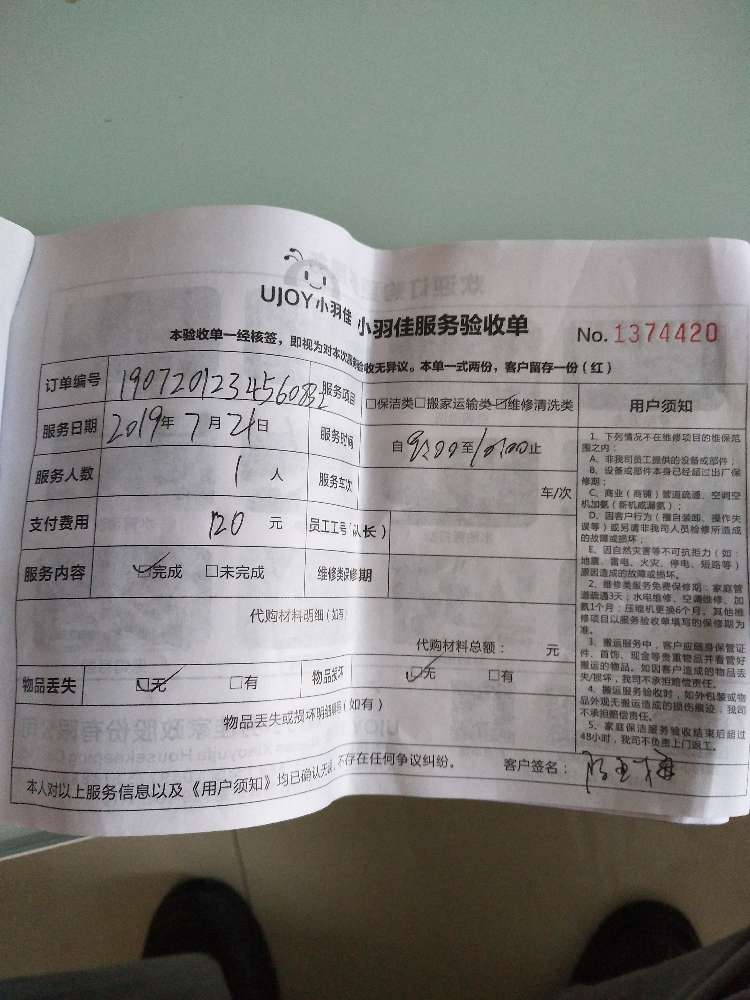 UJOY小羽佳 小羽佳服务验收单
No. 1374420
本验收单一经核签，即视为对本次服务验收无异议。本单一式两份，客户留存一份（红）
订单编号
服务项目 □保洁类□搬家运输类☑维修清洗类
服务日期 2019年7月21日 服务时间 自9:00至10:00止
服务人数 1人 服务车次 车/次
支付费用 120元 员工工号（队长）
服务内容 ☑完成 □未完成 维修类保修期
代购材料明细（如有）
代购材料总额： 元
物品丢失 ☑无 □有 物品损坏 ☑无 □有
物品丢失或损坏明细（如有）
本人对以上服务信息以及《用户须知》均已确认无误，不存在任何争议纠纷。 客户签名：
用户须知
1、下列情况不在维修项目的维保范
围之内：
A、非我司员工提供的设备或部件；
B、设备或部件本身已经超过出厂保
修期；
C、商业（商铺）管道疏通、空调空
机加氨（新机或漏氨）；
D、因客户行为（擅自装卸、操作失
误等）或另请非我司人员检修所造成
的故障或损坏；
E、因自然灾害等不可抗拒力（如：
地震、雷电、火灾、停电、短路等）
原因造成的故障或损坏。
2、维修类服务免费保修期：家庭管
道疏通3天；水电维修、空调维修、加
氨1个月；压缩机更换6个月。其他维
修项目以服务验收单填写的保修期为
准。
3、搬运服务中，客户应随身保管证
件、首饰、现金等贵重物品并看管好
搬运的物品。如因客户造成的物品丢
失/损坏，我司不承担赔偿责任。
4、搬运服务验收时，如外包装或物
品外观无搬运造成的损伤痕迹，我司
不承担赔偿责任。
5、家庭保洁服务验收结束后超过
48小时，我司不负责上门返工。